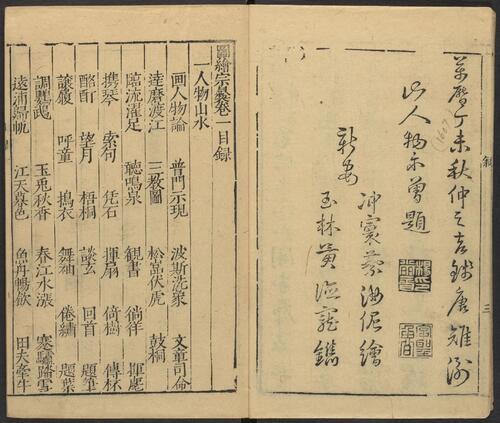 萬曆丁未秋仲之吉錢唐雉衡
山人楊尔曾題
冲寰蔡汝佐繪
新安
玉林黃德寵鐫
叙
三
1607
圖繪宗彝卷一目録
一人物山水
画人物論 普門示現 波斯洗象 文司命
達磨渡江 三教圖 松窩伏虎 鼓桐
臨流濯足 聽鳴泉 観書 徜徉 揮麈
携琴 索句 凭石 揮扇 倚樹 傳杯
酩酊 望月 梧桐 談玄 回首 題筆
譲履 呼童 搗衣 舞袖 倦繡 題葉
調鸚鵡 玉兎秋香 春江水漲 蹇驢踏雪
遠浦歸帆 江天暮色 魚舟暢飲 田夫牽牛